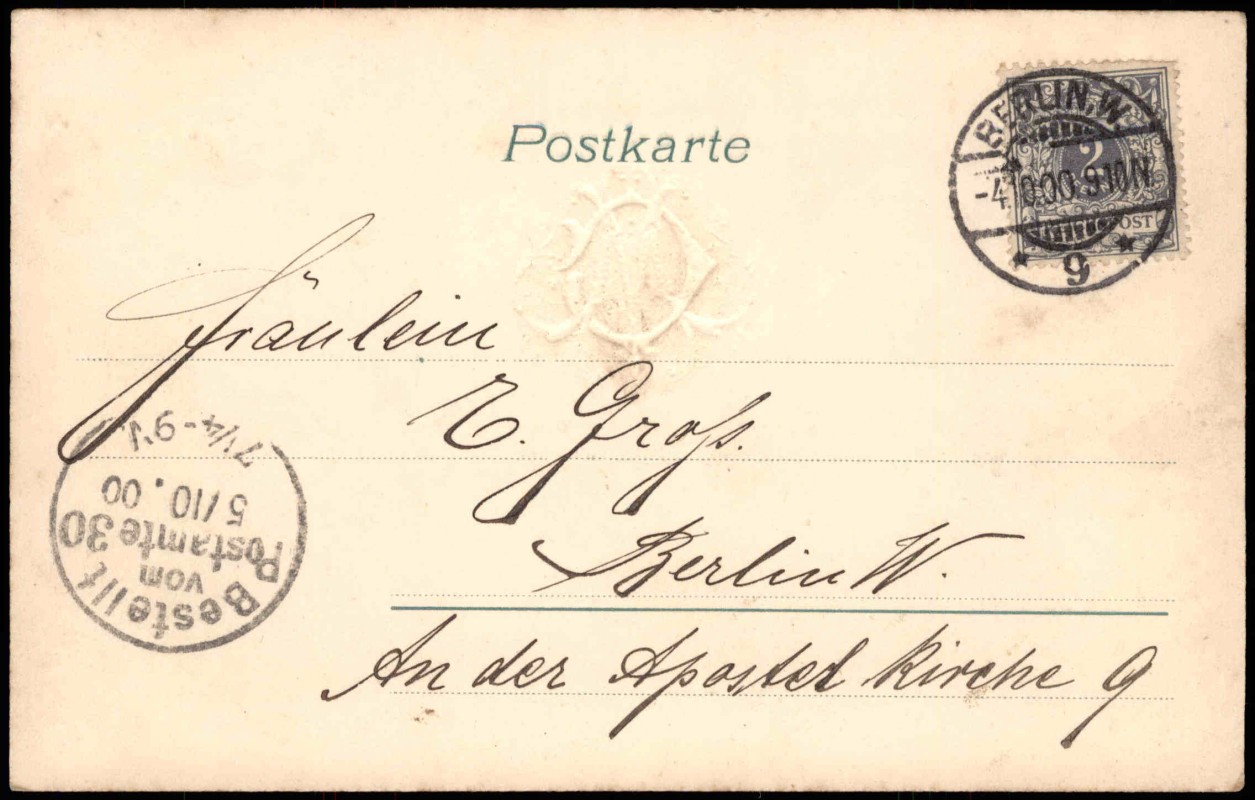 Postkarte
BERLIN, W.
-4.10.00. 9-10N
* 9 *
2
POST
Fräulein
E. Groß.
Berlin W.
An der Apostel Kirche 9
Bestellt
vom
Postamte 30
5/10.00
7¼-9V.